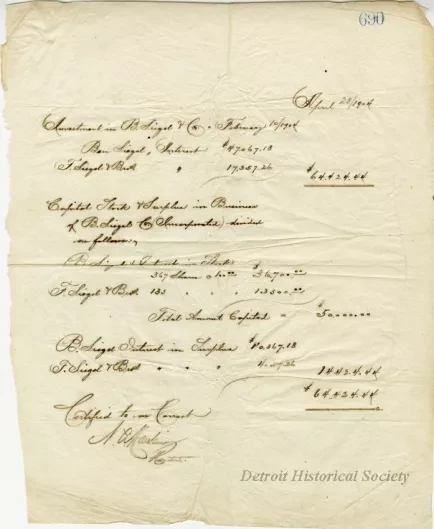 690
April 25/1904
Investment in B. Siegel & Co. February 10/1904
Ben Siegel, Interest $47067.18
F. Siegel & Bro " 17,357.26
$64,424.44
Capital Stock & Surplus in Business
of B. Siegel Co (Incorporated) divided
as follows,
B. Siegel in
367 Share $36,700.00
F. Siegel & Bro. 133 " " 13300.00
Total Amount Capital = $50000.00
B. Siegel Interest in Surplus $10,367.18
F. Siegel & Bro " " " 4,057.26
14424.44
$64,424.44
Certified to as Correct
Detroit Historical Society